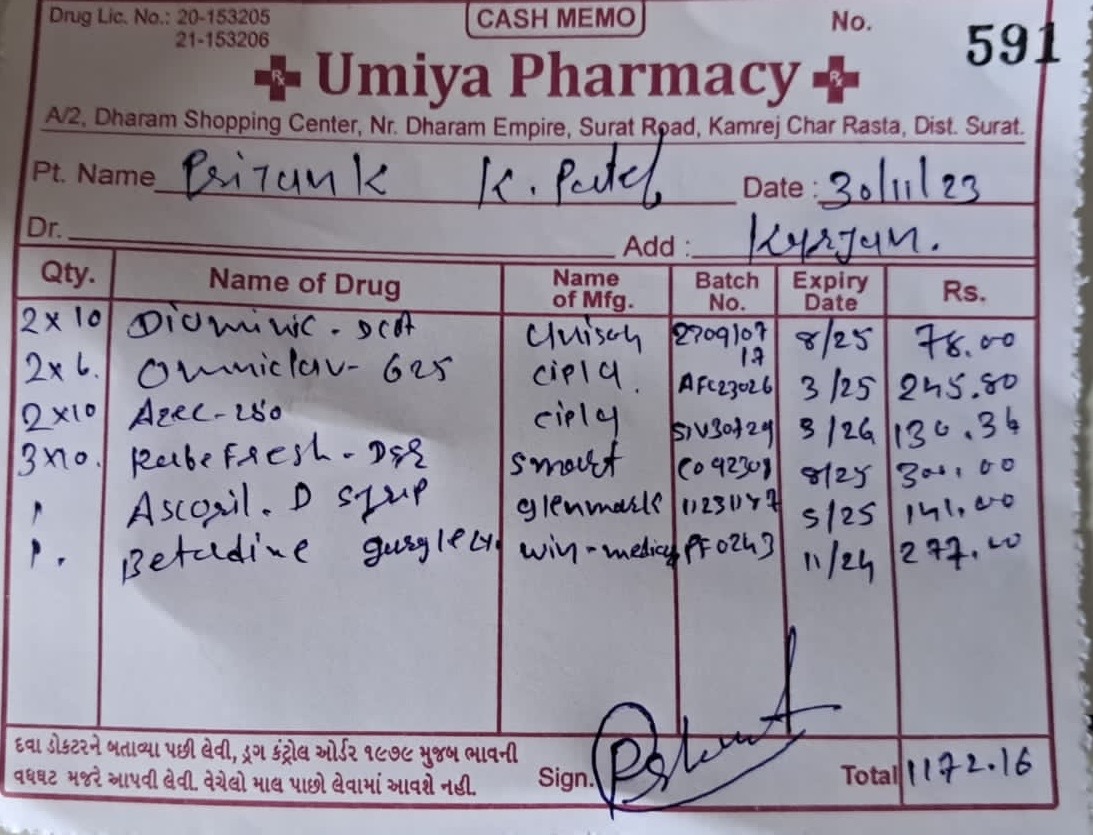 Drug Lic. No.: 20-153205 CASH MEMO No. 591
21-153206
Umiya Pharmacy
A/2, Dharam Shopping Center, Nr. Dharam Empire, Surat Road, Kamrej Char Rasta, Dist. Surat.
Pt. Name K. Patel Date : 30/11/23
Dr. Add : Karjan.
Qty. Name of Drug Name of Mfg. Batch No. Expiry Date Rs.
2x10 8/25 78.00
2x6. Omniclav-625 cipla AFC23026 3/25 245.80
2x10 Azee-250 cipla 3/26 130.36
3x10. RabeFresh-DSR smart 8/25 300.00
1 Ascoril. D syrup glenmark 5/25 141.00
1. Betadine gurgle win-medicy PF0243 11/24 277.00
દવા ડોકટરને બતાવ્યા પછી લેવી, ડ્રગ કંટ્રોલ ઓર્ડર ૧૯૭૯ મુજબ ભાવની
વધઘટ મજરે આપવી લેવી. વેચેલો માલ પાછો લેવામાં આવશે નહી. Sign. Total 1172.16